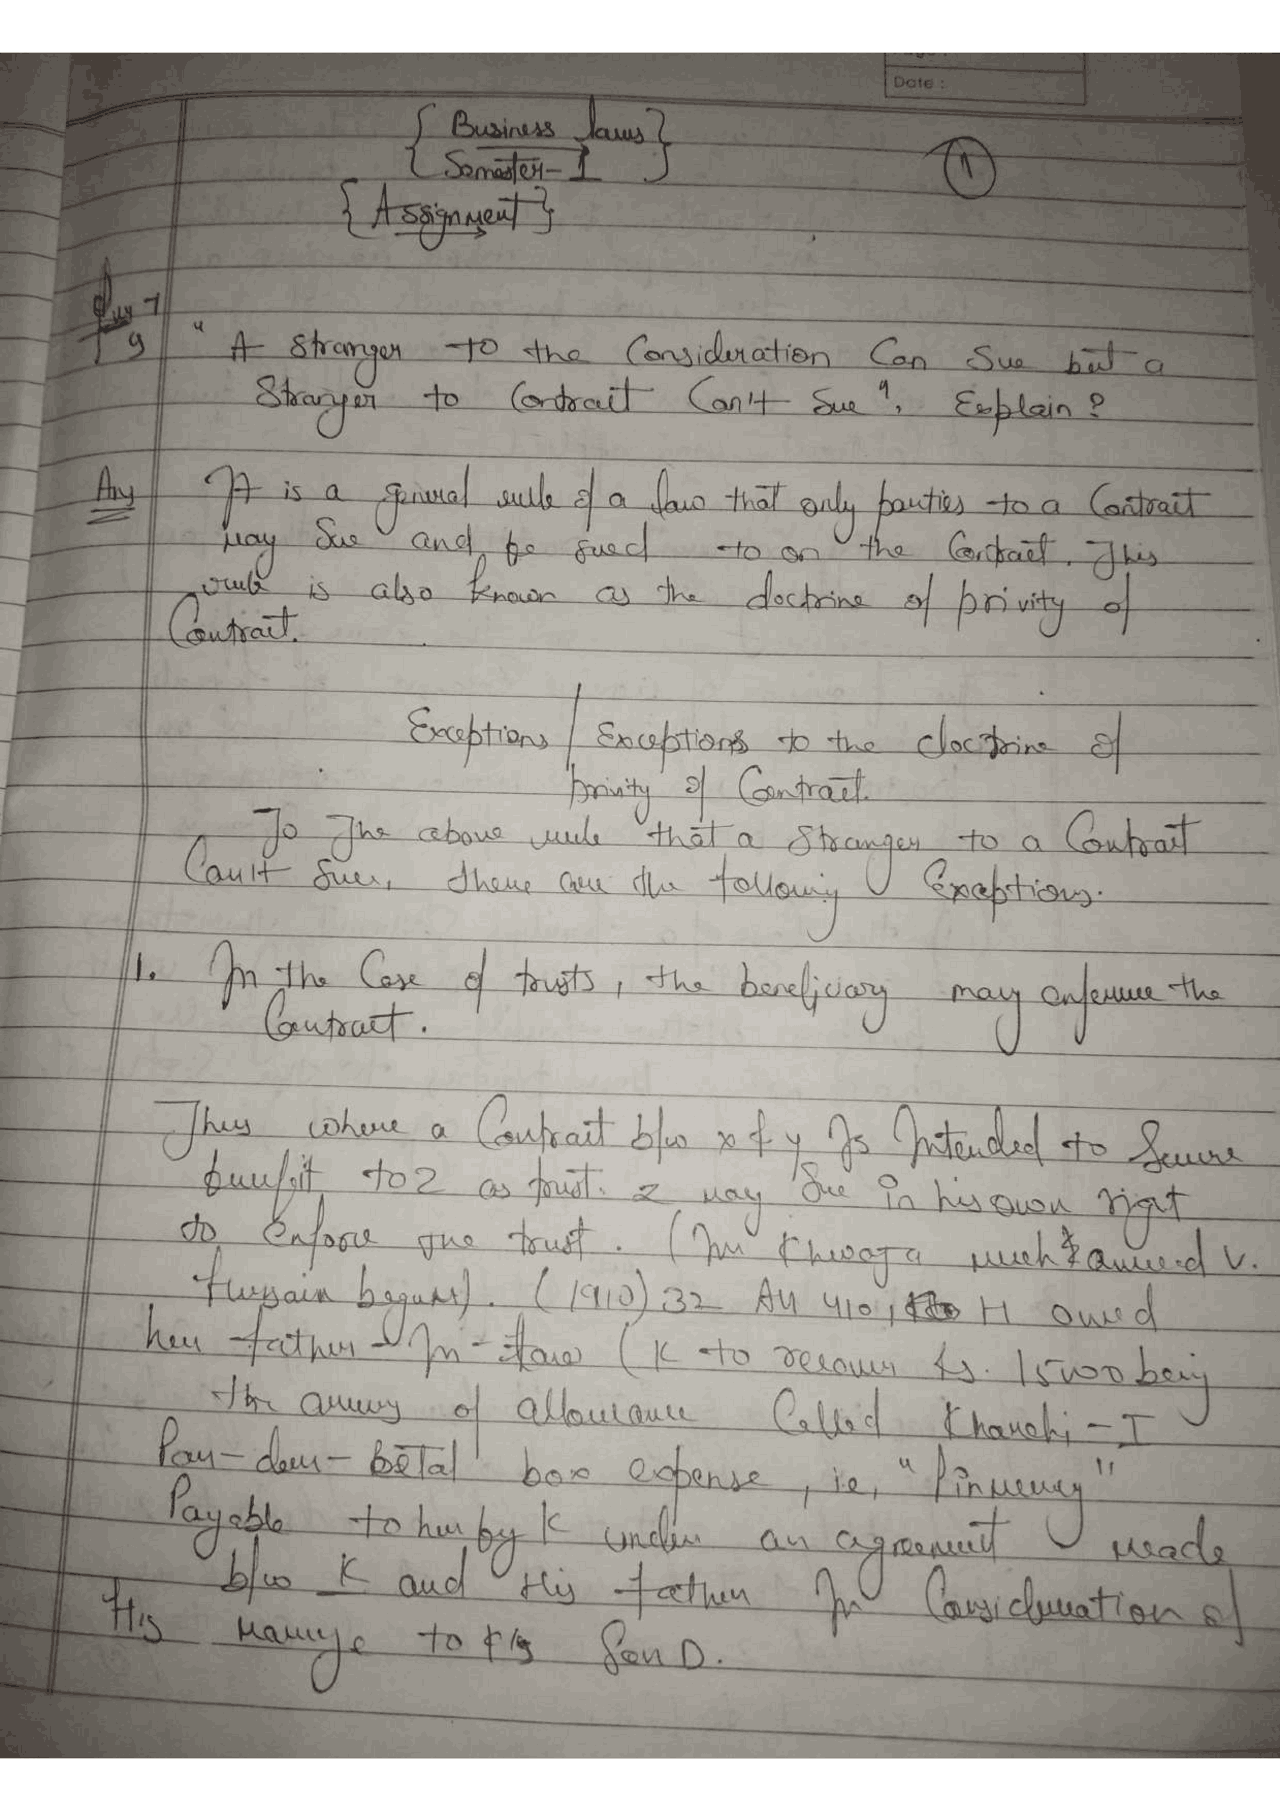 Date :
{ Business laws }
{ Semester-I }
1
{ Assignment }
9 " A Stranger to the Consideration Can Sue but a
Stranger to Contract Can't Sue ". Explain ?
Ans It is a general rule of a law that only parties to a Contract
may Sue and be sued to on the Contract. This
rule is also known as the doctrine of privity of
Contract.
Exceptions / Exceptions to the doctrine of
privity of Contract.
To The above rule that a Stranger to a Contract
Can't Sue, there are the following Exceptions.
1. In the Case of trusts, the beneficiary may the
Contract.
Thus where a Contract b/w x & y Is Intended to Secure
benefit to z as trust. z may Sue in his own right
to enforce the trust. ( Khwaja v.
begum). (1910) 32 All 410, H
her father-In-law ( K to recover Rs. 15000 being
the of allowance Called
box expense, i.e, "
Payable to her by K under an agreement made
b/w K and His father In Consideration of
His to Son D.